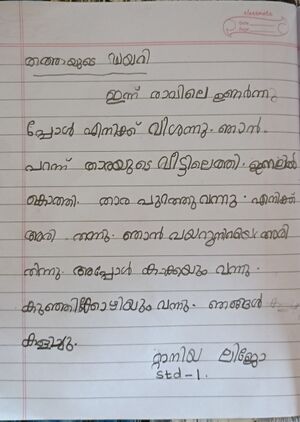 classmate
Date
Page
തത്തയുടെ ഡയറി
ഇന്ന് രാവിലെ ഉണർന്ന
പ്പോൾ എനിക്ക് വിശന്നു. ഞാൻ
പറന്ന് താരയുടെ വീട്ടിലെത്തി. ജനലിൽ
കൊത്തി. താര പുറത്തുവന്നു. എനിക്ക്
അരി തന്നു. ഞാൻ വയറുനിറയെ അരി
തിന്നു. അപ്പോൾ കാക്കയും വന്നു.
കുഞ്ഞിക്കോഴിയും വന്നു. ഞങ്ങൾ
കളിച്ചു.
റ്റാനിയ ലിജോ
std-1.